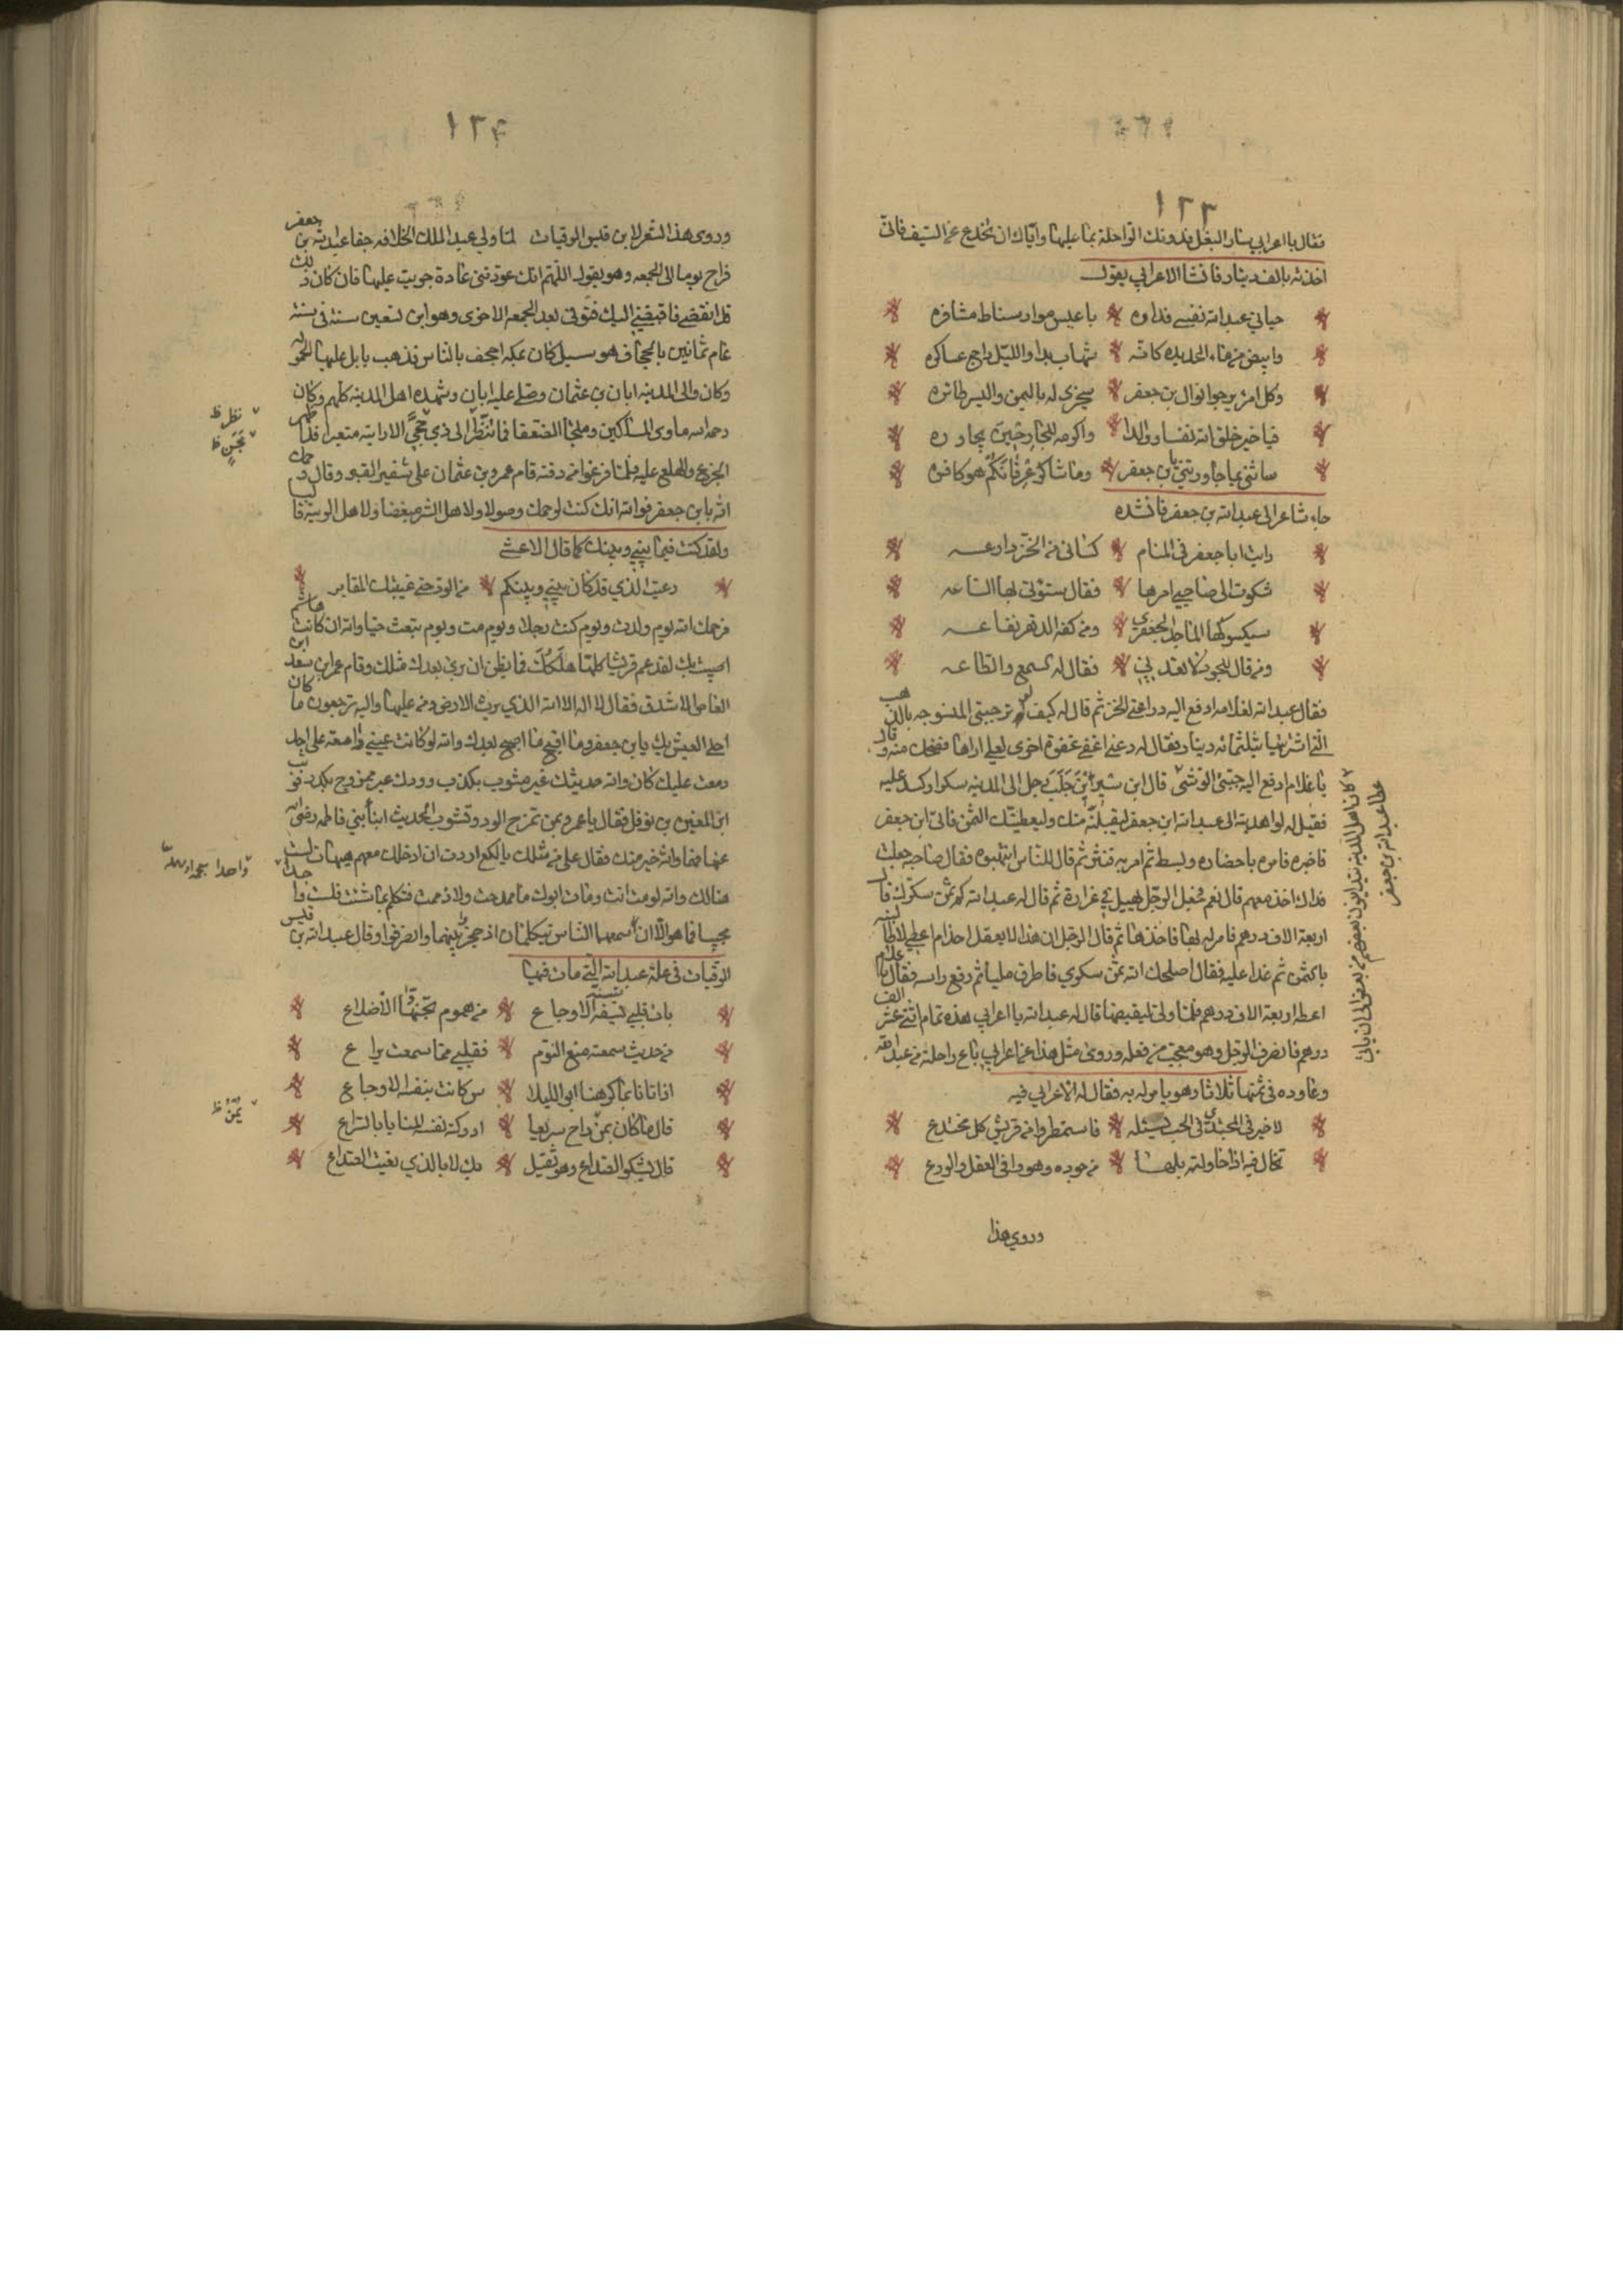 ١٣٣
فقال يا اعرابي سار البغل فدونك الراحلة بما عليها واياك ان تخدع عن السيف فاني
اخذته بالف دينار فانشا الاعرابي يقول
حباني عبدالله نفسي فداوه باعيس موار سباط مشافره
وابيض من ماء الحديد كانه شهاب بدا والليل داج عساكره
وكل امرئ يرجو نوال بن جعفر سيجزى له باليمن واليسر طائره
فيا خير خلق الله نفسا ووالدا واكرمه للجار حين يجاوره
ساثني بما جاورتني يا بن جعفر وما شاكر عرفانكم هو كافره
جاء شاعر الى عبدالله بن جعفر فانشده
رايت ابا جعفر في المنام كساني من الخز دراعه
شكوت الى صاحبي امرها فقال ستؤتى بها الساعه
سيكسوكها الماجد الجعفري ومن كفه الدهر نفاعه
ومن قال للجود لا تعدني فقال له السمع والطاعه
فقال عبدالله لغلامه ادفع اليه دراعتي الخز ثم قال له كيف لو ترجبتي المنسوجه بالذهب
التي اشتريتها بثلثمائه دينار فقال له دعني اغفي غفوة اخرى لعلي اراها فضحك منه وقال
يا غلام ادفع اليه جبتي الوشي قال ابن سيرين جلب رجل الى المدينه سكرا وكسد عليه
فقيل له لو اهديته الى عبدالله ابن جعفر ليقبلنه منك وليعطينك الثمن فاتى ابن جعفر
فاخبره فامره باحضاره وبسط ثم امر به فنثر ثم قال للناس انتهبوه فقال صاحبه جعلت
فداك اخذ معهم قال نعم فجعل الرجل يهيل في غرارة ثم قال له عبدالله كم ثمن سكرك قال
اربعة الاف درهم فامر له بها فاخذها ثم قال الرجل ان هذا لا يعقل اخذ ام اعطي لاطالبنه
بالثمن ثم غدا عليه فقال اصلحك الله ثمن سكري فاطرق مليا ثم رفع راسه فقال يا غلام
اعطه اربعة الاف درهم فلما ولى ليقبضها قال له عبدالله يا اعرابي هذه تمام اثني عشر الف
درهم فانصرف الرجل وهو معجب من فعله وروى مثل هذا عن اعرابي باع راحلة من عبدالله
وعاوده في ثمنها ثلاثا وهو يامر له به فقال له الاعرابي فيه
لا خير في المجتدى في الحب تسئله فاستمطروا من قريش كل مختدع
تخال فيه اذا حاولته بلها من جوده وهو وافي العقل والورع
وروي هذا
كان اهل المدينة يتداينون بعضهم من بعض الى ان ياتي
عطا عبدالله بن جعفر
١٣٤
وروى هذا الشعر لابن قيس الرقيات لما ولي عبد الملك الخلافه جفا عبدالله بن جعفر
فراح يوما الى الجمعه وهو يقول اللهم انك عودتني عادة جريت عليها فان كان ذلك
قد انقضى فاقبضني اليك فتوفي بعد الجمعه الاخرى وهو ابن تسعين سنة في سنة
عام ثمانين بالجحاف هو سيل كان بمكه اجحف بالناس فذهب بابل عليها الحموله
وكان والي المدينه ابان بن عثمان وصلى عليه ابان وشهده اهل المدينه كلهم وكان
رحمه الله ماوى المساكين وملجا الضعفا فانتظر الى ذي حجي الا رايته متعبرا قد ظهر
الجزع والهلع عليه فلما فرغوا من دفنه قام عمرو بن عثمان على شفير القبر وقال رحمك
الله يا بن جعفر فوالله انك كنت لرحمك وصولا ولاهل الشر مبغضا ولاهل الريبة قاليا
ولقد كنت فيما بيني وبينك كما قال الاعشى
رعيت الذي قد كان بيني وبينكم من الود حتى غيبتك المقابر
فرحمك الله يوم ولدت ويوم كنت رجلا ويوم مت ويوم تبعث حيا والله ان كانت هاشم
اصيبت بك لقد عم قريشا كلها هلكك فما يظن ان يرى بعدك مثلك وقام عمرو ابن سعد ابن
العاص الاشدق فقال لا اله الا الله الذي يرث الارض ومن عليها واليه ترجعون ما كان
احلى العيش بك يا بن جعفر وما اقبح ما اصبح بعدك والله لو كانت عيني دامعة على احد
دمعت عليك كان والله حديثك غير مشوب بكذب وودك غير ممزوج بكدر فوثب
ابن المغيره بن نوفل فقال يا عمرو بمن تمزج الود وتشوب الحديث ابنا بني فاطمه رضى الله
عنها فهما والله خير منك فقال على من مثلك يا لكع اردت ان ادخلك معهم هيهات لست
هنالك والله لو مت انت ومات ابوك ما مدحت ولا ذممت فتكلم بما شئت فلست واجدا لك
مجيبا فما هو الا ان سمعها الناس يتكلمان اذ حجز بينهما وانصرفوا وقال عبيدالله بن قيس
الرقيات في علة عبدالله التي مات فيها
بات قلبي تشفه الاوجاع من هموم تجنها الاضلاع
من حديث سمعته منع النوم فقلبي مما سمعت يراع
اذ اتانا بما كرهنا ابو الليلا س كانت بنفسه الاوجاع
قال ما كان يمن راح سريعا ادركت نفسه المنايا بالتراع
قال يشكو الصداع وهو ثقيل بك لا بالذي بغيت الصداع
نظر ظ